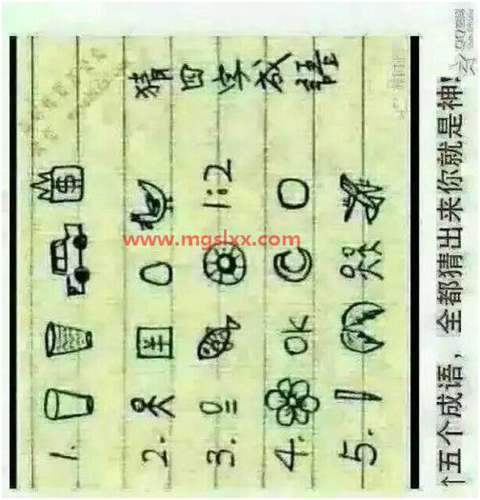 猜四字成語
1. $
2.
3. 1:2
4. OK C
5.
www.mgslxx.com
↑五个成语，全都猜出来你就是神!